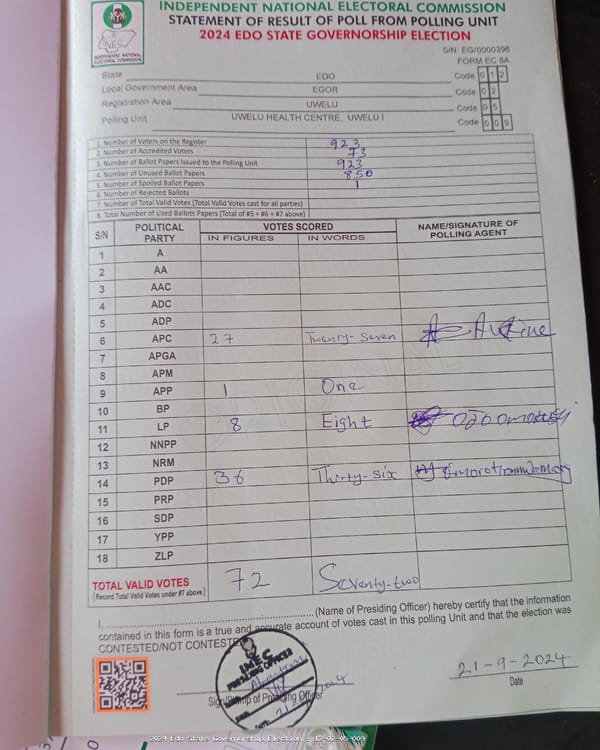 INDEPENDENT NATIONAL ELECTORAL COMMISSION
STATEMENT OF RESULT OF POLL FROM POLLING UNIT
2024 EDO STATE GOVERNORSHIP ELECTION
INEC
INDEPENDENT NATIONAL ELECTORAL COMMISSION
S/N: EG/0000396
FORM EC 8A
State EDO Code 0 1 2
Local Government Area EGOR Code 0 2
Registration Area UWELU Code 0 5
Polling Unit UWELU HEALTH CENTRE, UWELU I Code 0 0 9
1. Number of Voters on the Register 923
2. Number of Accredited Voters 73
3. Number of Ballot Papers Issued to the Polling Unit 923
4. Number of Unused Ballot Papers 850
5. Number of Spoiled Ballot Papers 1
6. Number of Rejected Ballots
7. Number of Total Valid Votes (Total Valid Votes cast for all parties)
8. Total Number of Used Ballots Papers (Total of #5 + #6 + #7 above)
S/N POLITICAL PARTY VOTES SCORED NAME/SIGNATURE OF POLLING AGENT
IN FIGURES IN WORDS
1 A
2 AA
3 AAC
4 ADC
5 ADP
6 APC 27 Twenty-Seven
7 APGA
8 APM
9 APP 1 One
10 BP
11 LP 8 Eight
12 NNPP
13 NRM
14 PDP 36 Thirty-six
15 PRP
16 SDP
17 YPP
18 ZLP
TOTAL VALID VOTES 72 Seventy-two
(Record Total Valid Votes under #7 above)
I, (Name of Presiding Officer) hereby certify that the information
contained in this form is a true and accurate account of votes cast in this polling Unit and that the election was
CONTESTED/NOT CONTESTED
INEC
PRESIDING OFFICER
Sign/Stamp of Presiding Officer
21-9-2024
Date
2024 Edo State Governorship Election - 12-02-05-009